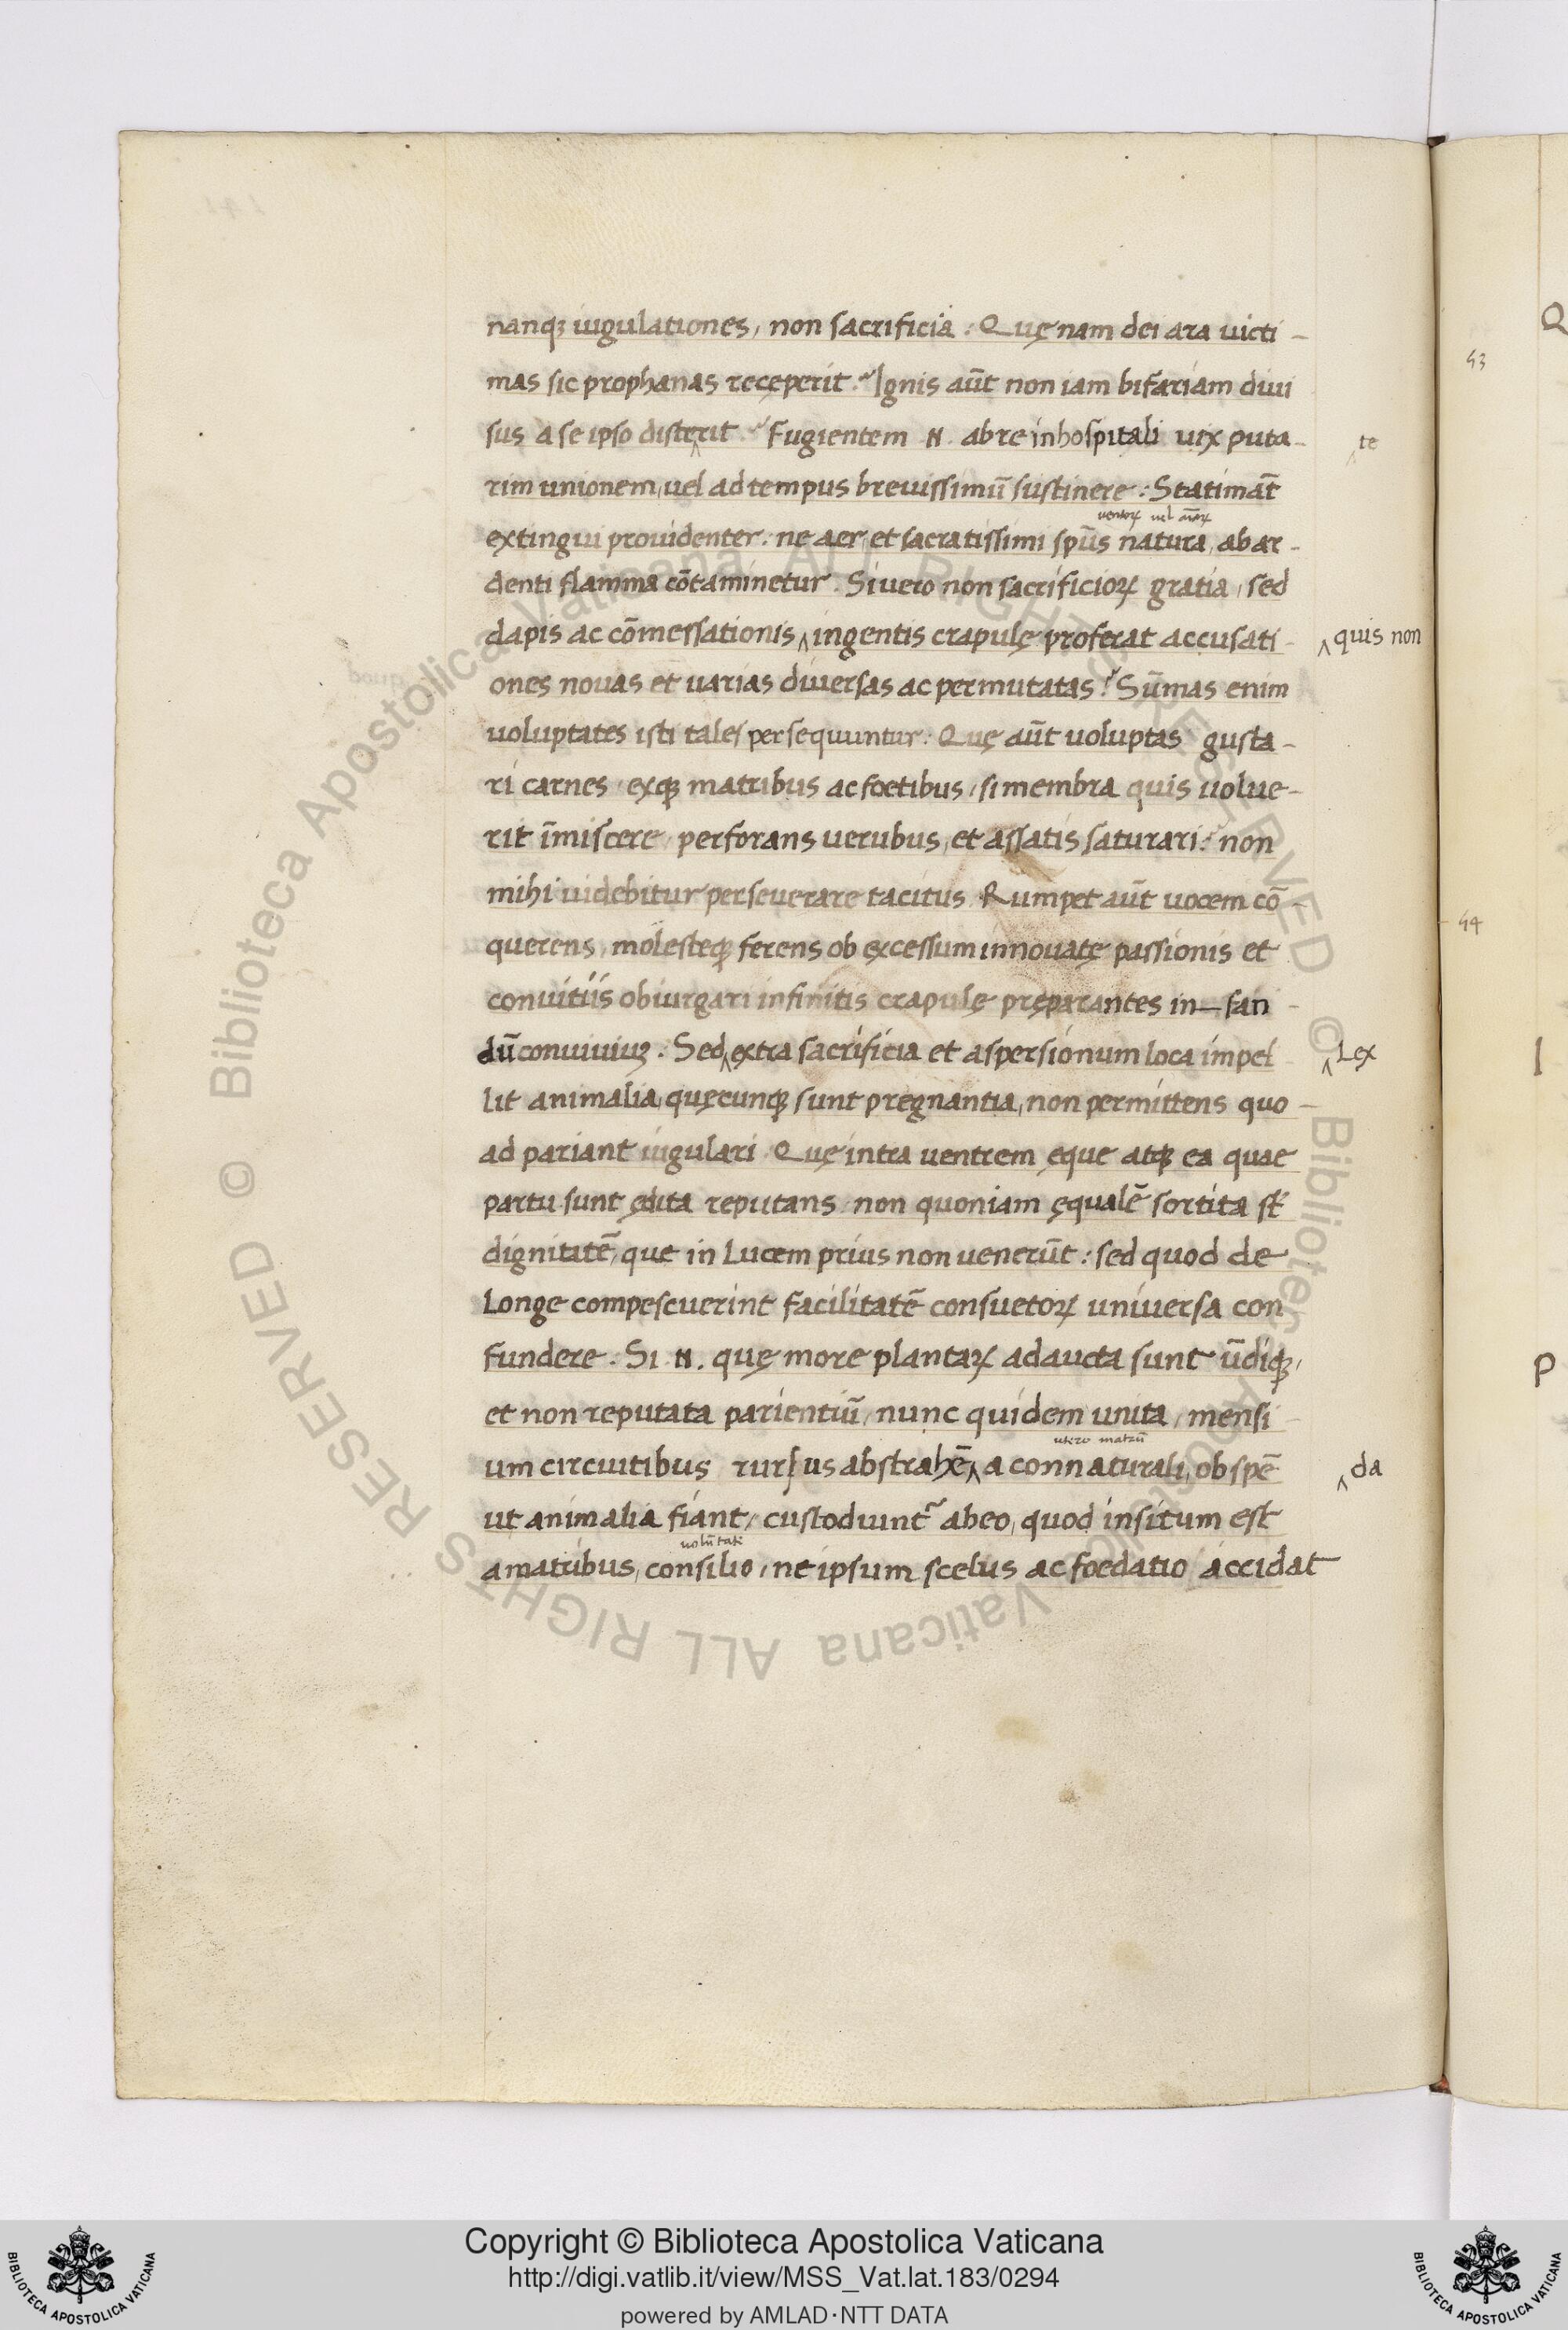 nanqꝫ iugulationes, non sacrificia: Quę nam dei ara victi-
mas sic prophanas recęperit? Ignis aūt non iam bifariam divi
sus a se ipso disterit? Fugientem .N. ab re inhospitali vix puta-
te
rim unionem, vel ad tempus brevissimū sustinere: Statim āt
ventoꝝ vel aīaꝝ
extingui providenter: ne aer, et sacratissimi spūs natura, ab ar-
denti flamma cōtaminetur. Si vero non sacrificioꝝ gratia, sed
dapis ac cōmessationis, ingentis crapulę proferat accusati-
quis non
ones novas et varias diversas ac permutatas? Sūmas enim
voluptates isti tales persequuntur: Quę aūt voluptas gusta-
ri carnes, exqꝫ matribus ac foetibus, si membra quis volue-
rit īmiscere, perforans verubus, et assatis saturari: non
mihi videbitur perseverare tacitus. Rumpet aūt vocem cō-
querens, molesteqꝫ ferens ob excessum innovatę passionis et
convitiis obiurgari infinitis crapulę pręparantes in—fan-
dū conviviuꝫ. Sed extra sacrificia et aspersionum loca impel
Lex
lit animalia, quęcunqꝫ sunt pregnantia, non permittens quo-
ad pariant iugulari. Quę intra ventrem ęque atqꝫ ea quae
partu sunt ędita reputans, non quoniam ęqualē sortita st̄
dignitatē, que in lucem prius non venerūt: sed quod de
longe compescuerint facilitatē consuetoꝝ universa con
fundere. Si .N. quę more plantaꝝ adaucta sunt ūdiqꝫ,
et non reputata parientiū, nunc quidem unita, mensi-
utero matrū
um circuitibus rursus abstrahē a connaturali, ob spē
da
ut animalia fiant, custodiunt᷑ ab eo, quod insitum est
volūtati
a matribus, consilio, ne ipsum scelus ac foedatio accidat
53
54
Q
I
P
Copyright © Biblioteca Apostolica Vaticana
http://digi.vatlib.it/view/MSS_Vat.lat.183/0294
powered by AMLAD·NTT DATA
BIBLIOTECA APOSTOLICA VATICANA
BIBLIOTECA APOSTOLICA VATICANA
© Biblioteca Apostolica Vaticana ALL RIGHTS RESERVED © Biblioteca Apostolica Vaticana ALL RIGHTS RESERVED